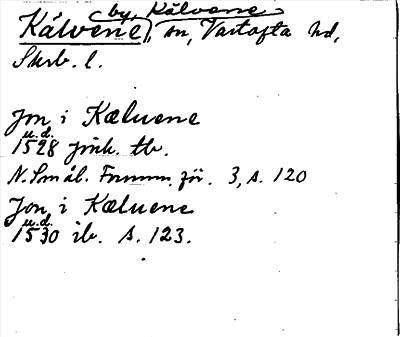 by, Kälvene
Kälvene, sn, Vartofta hd,
Skrb. l.
Jon i Kæluene
u.d.
1528 jönk. tb.
N. Smål. Fornm. för. 3, s. 120
Jon i Kæluene
u.d.
1530 ib. s. 123.